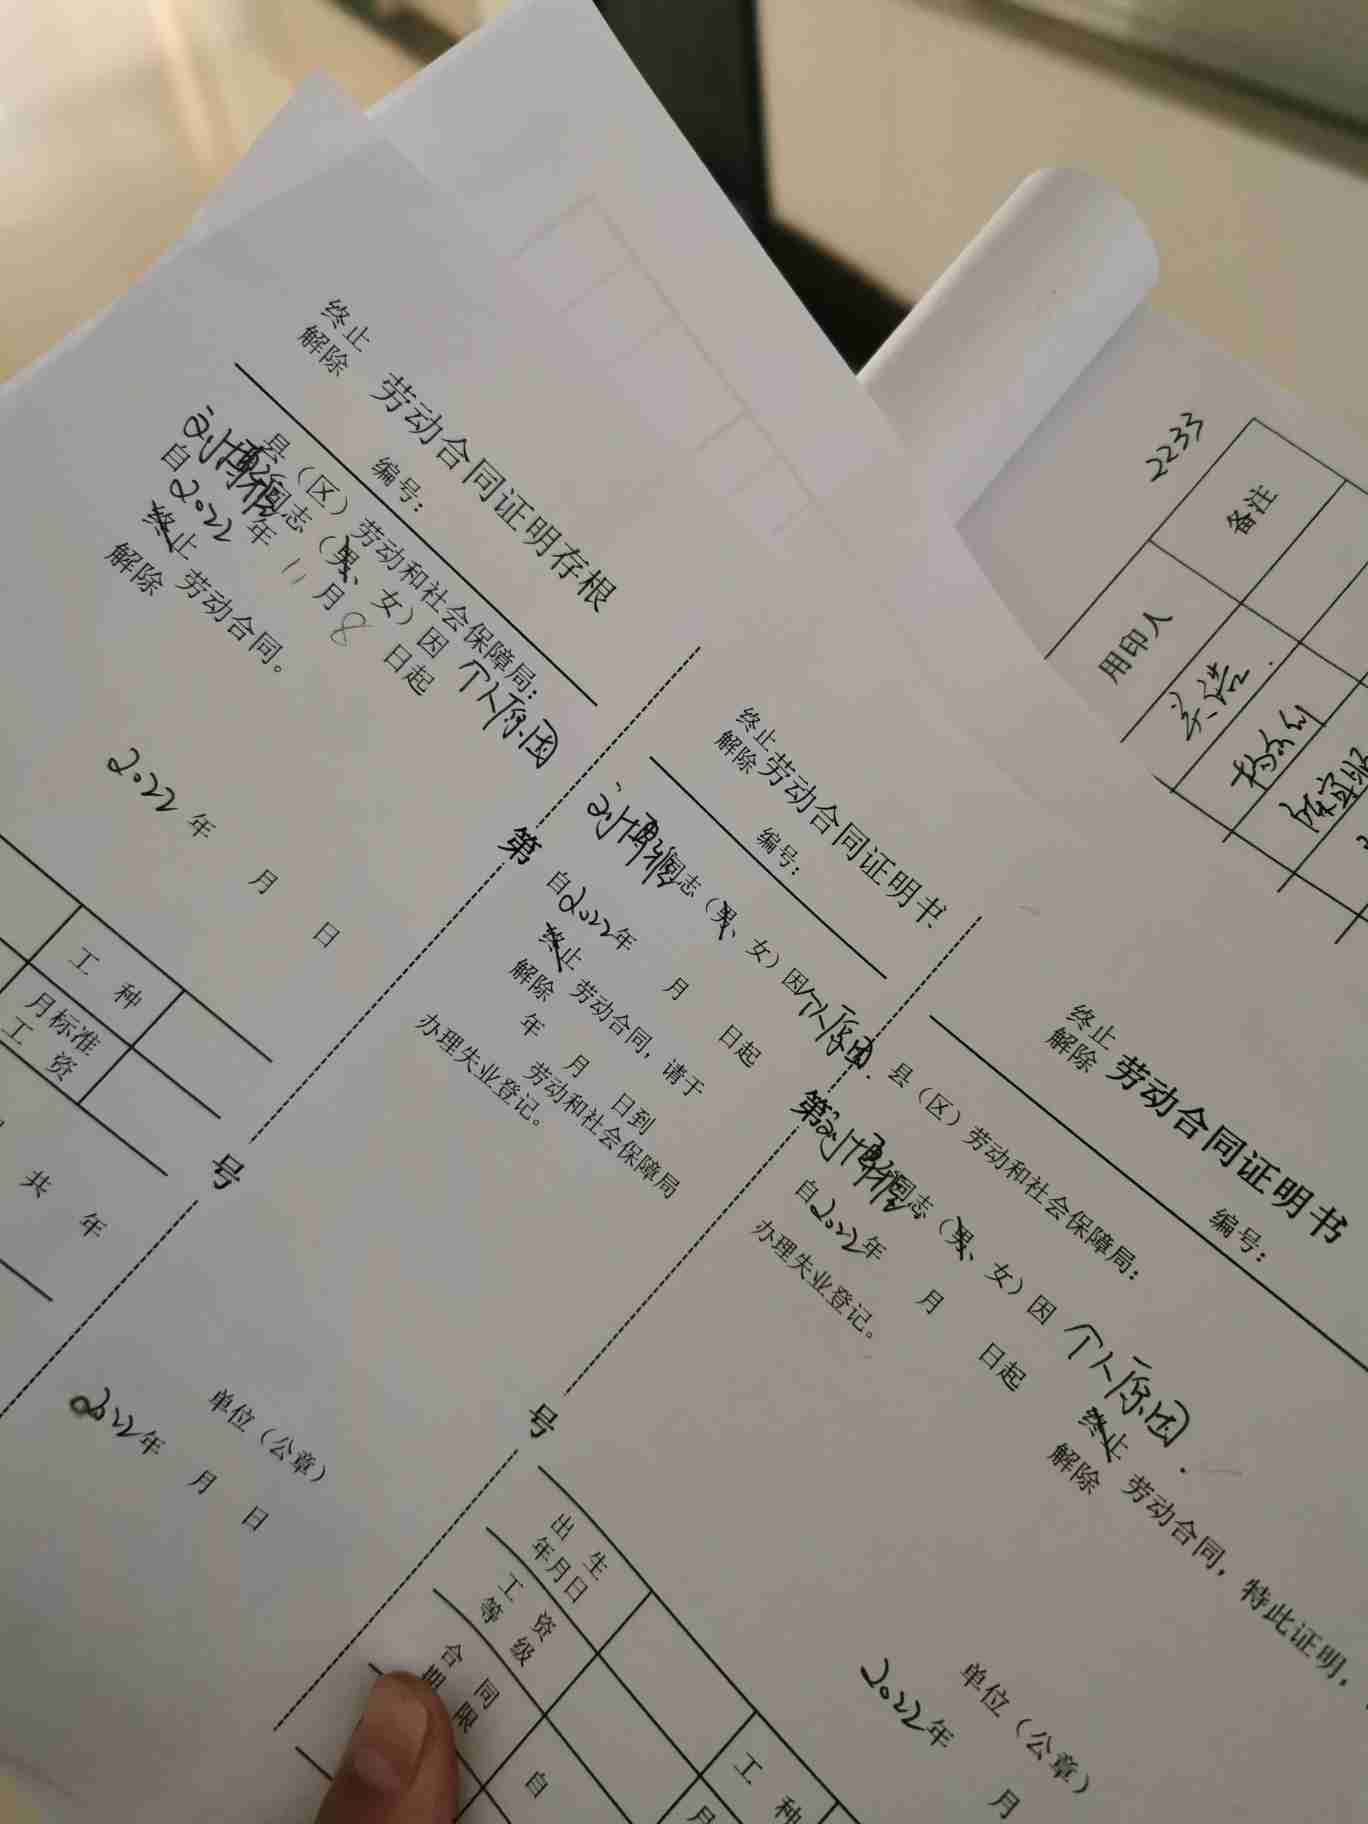 终止
解除 劳动合同证明存根
编号:
县（区）劳动和社会保障局:
同志（男、女）因 个人原因
自2022年11月8日起
终止
解除 劳动合同。
2022年 月 日
工 种
月标准
工 资
共 年
第 号
终止
解除 劳动合同证明书
编号:
同志（男、女）因 个人原因
自2022年 月 日起
终止
解除 劳动合同，请于
年 月 日到
劳动和社会保障局
办理失业登记。
单位（公章）
2022年 月 日
第 号
终止
解除 劳动合同证明书
编号:
县（区）劳动和社会保障局:
同志（男、女）因 个人原因
自2022年 月 日起
终止
解除 劳动合同，特此证明，
办理失业登记。
单位（公章）
2022年 月
出 生
年月日
工 资
等 级
合 同
期 限
自
工 种
月
2233
备注
用印人